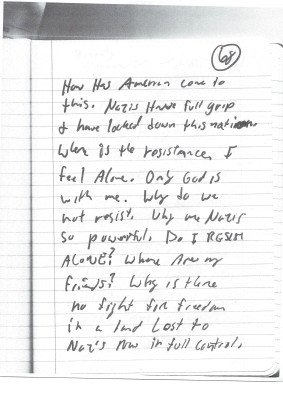 68
How Has American come to
this. Nazis Have full grip
& have locked down this nation.
When is the resistance, I
feel Alone. Only God is
with me. Why do we
not resist. Why are Nazis
so powerful. Do I RESIST
ALONE? Where Are my
Friends? Why is there
no fight for freedom
in a land Lost to
Nazi's now in full control.